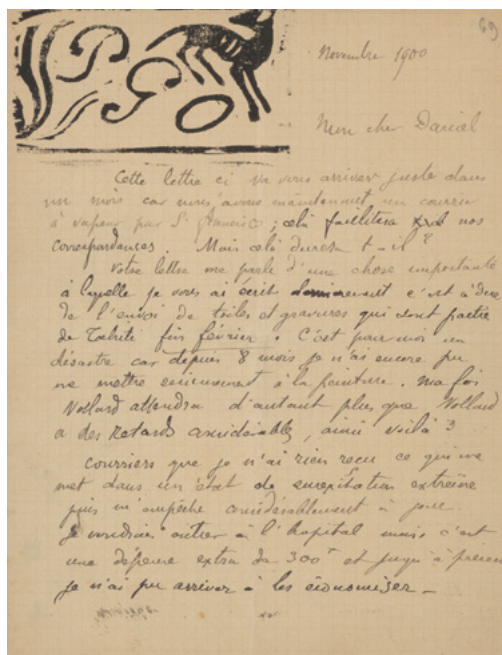 69
PGO
Novembre 1900
Mon cher Daniel
Cette lettre ci va vous arriver juste dans
un mois car nous avons maintenant un courrier
à vapeur par St Francisco; celà facilitera nos
correspondances. Mais celà durera t-il?
Votre lettre me parle d'une chose importante
à laquelle je vous ai écrit dernièrement c'est à dire
de l'envoi de toiles et gravures qui sont partie
de Tahiti fin février. C'est pour moi un
désastre car depuis 8 mois je n'ai encore pu
me mettre sérieusement à la peinture. Ma foi
Vollard attendra d'autant plus que Vollard
a des retards considérables, ainsi voilà 3
courriers que je n'ai rien reçu ce qui me
met dans un état de surexitation extrême
puis m'empêche considérablement à
je voudrais entrer à l'hopital mais c'est
une dépense extra de 300f et jusqu'à présent
je n'ai pu arriver à les économiser -